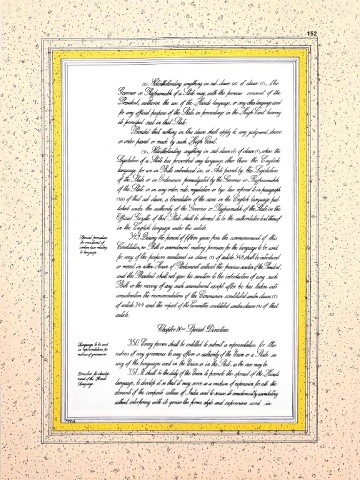 152
(2) Notwithstanding anything in sub-clause (a) of clause (1), the
Governor or Rajpramukh of a State may, with the previous consent of the
President, authorise the use of the Hindi language, or any other language used
for any official purposes of the State, in proceedings in the High Court having
its principal seat in that State:
Provided that nothing in this clause shall apply to any judgment, decree
or order passed or made by such High Court.
(3) Notwithstanding anything in sub-clause (b) of clause (1), where the
Legislature of a State has prescribed any language other than the English
language for use in Bills introduced in, or Acts passed by, the Legislature
of the State or in Ordinances promulgated by the Governor or Rajpramukh
of the State or in any order, rule, regulation or bye-law referred to in paragraph
(iii) of that sub-clause, a translation of the same in the English language pub-
lished under the authority of the Governor or Rajpramukh of the State in the
Official Gazette of that State shall be deemed to be the authoritative text thereof
in the English language under this article.
Special procedure
for enactment of
certain laws relating
to language.
349. During the period of fifteen years from the commencement of this
Constitution, no Bill or amendment making provision for the language to be used
for any of the purposes mentioned in clause (1) of article 348 shall be introduced
or moved in either House of Parliament without the previous sanction of the President,
and the President shall not give his sanction to the introduction of any such
Bill or the moving of any such amendment except after he has taken into
consideration the recommendations of the Commission constituted under clause (1)
of article 344 and the report of the Committee constituted under clause (4) of that
article.
Chapter IV — Special Directives
Language to be used
in representations for
redress of grievances.
350. Every person shall be entitled to submit a representation for the
redress of any grievance to any officer or authority of the Union or a State in
any of the languages used in the Union or in the State, as the case may be.
Directive for develop-
ment of the Hindi
language.
351. It shall be the duty of the Union to promote the spread of the Hindi
language, to develop it so that it may serve as a medium of expression for all the
elements of the composite culture of India and to secure its enrichment by assimilating
without interfering with its genius, the forms, style and expressions used in